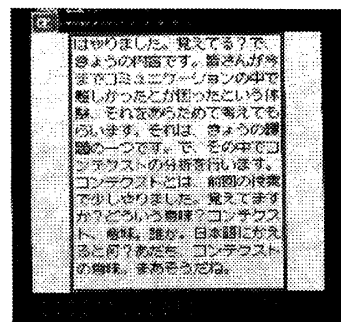 はやりました。覚えてる？で、
きょうの内容です。皆さんが今
までコミュニケーションの中で
難しかったとか困ったという体
験、それをあらためて考えても
らいます。それは、きょうの課
題の一つです。で、その中でコ
ンテクストの分析を行います。
コンテクストとは、前回の授業
で少しやりました。覚えてます
か？どういう意味？コンテクス
ト、意味。誰か。日本語にかえ
ると何？あだち、コンテクスト
の意味。まあそうだね。